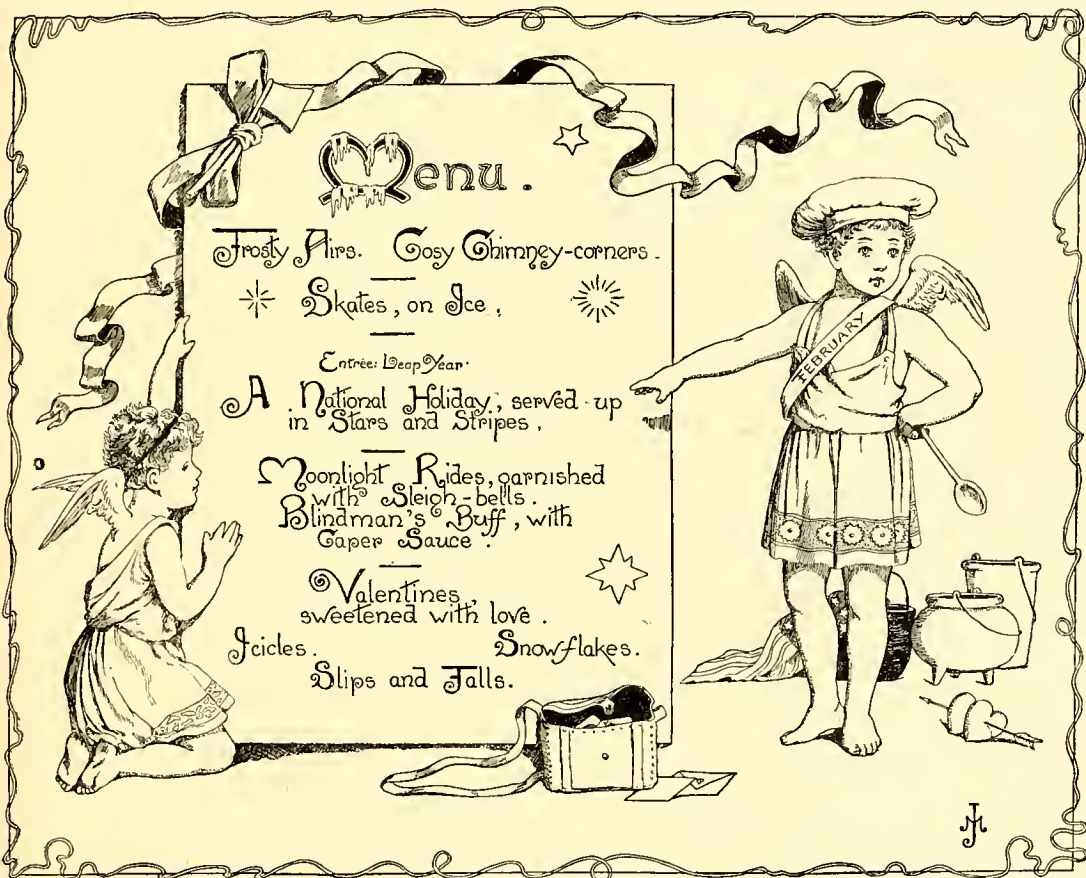 Menu.
Frosty Airs. Cosy Chimney-corners.
Skates, on Ice.
Entrée: Leap Year.
A National Holiday, served up
in Stars and Stripes.
Moonlight Rides, garnished
with Sleigh-bells.
Blindman's Buff, with
Caper Sauce.
Valentines,
sweetened with love.
Icicles. Snowflakes.
Slips and Falls.
FEBRUARY